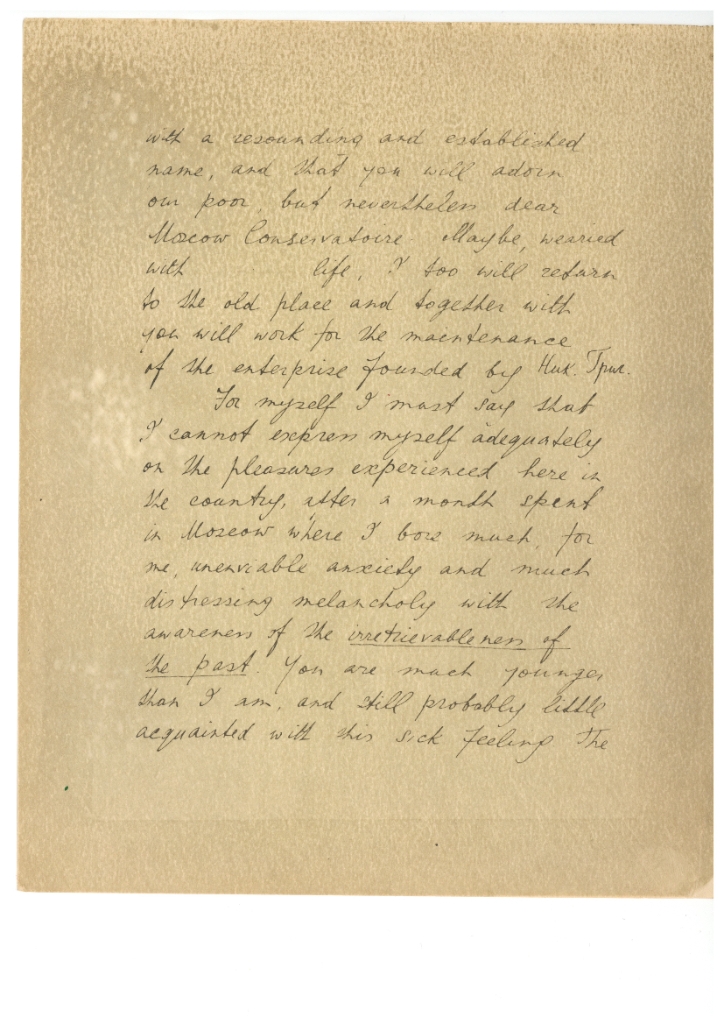 with a resounding and established
name, and that you will adorn
our poor, but nevertheless dear
Moscow Conservatoire. Maybe, wearied
with life, I too will return
to the old place and together with
you will work for the maintenance
of the enterprise founded by Ник. Григ.
For myself I must say that
I cannot express myself adequately
on the pleasures experienced here in
the country, after a month spent
in Moscow where I bore much, for
me, unenviable anxiety and much
distressing melancholy with the
awareness of the irretrievableness of
the past. You are much younger
than I am, and still probably little
acquainted with this sick feeling. The